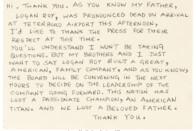 HI. THANK YOU. AS YOU KNOW MY FATHER,
LOGAN ROY, WAS PRONOUNCED DEAD ON ARRIVAL
AT TETERBORO AIRPORT THIS AFTERNOON.
I'D LIKE TO THANK THE PRESS FOR THEIR
RESPECT AT THIS TIME.
YOU'LL UNDERSTAND I WON'T BE TAKING
QUESTIONS, BUT MY BROTHERS AND I JUST
WANT TO SAY LOGAN ROY BUILT A GREAT,
AMERICAN, FAMILY COMPANY. AND AS YOU KNOW,
THE BOARD WILL BE CONVENING IN THE NEXT
HOURS TO DECIDE ON THE LEADERSHIP OF THE
COMPANY GOING FORWARD. THIS NATION HAS
LOST A PASSIONATE CHAMPION, AN AMERICAN
TITAN. AND WE LOST A BELOVED FATHER.
THANK YOU.